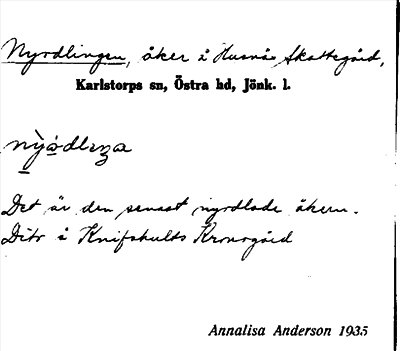 Nyrdlingen, åker å Husnäs Skattegård,
Karlstorps sn, Östra hd, Jönk. l.
Det är den senast nyrdlade åkern.
Dito å Knifshults Kronogård
Annalisa Anderson 1935